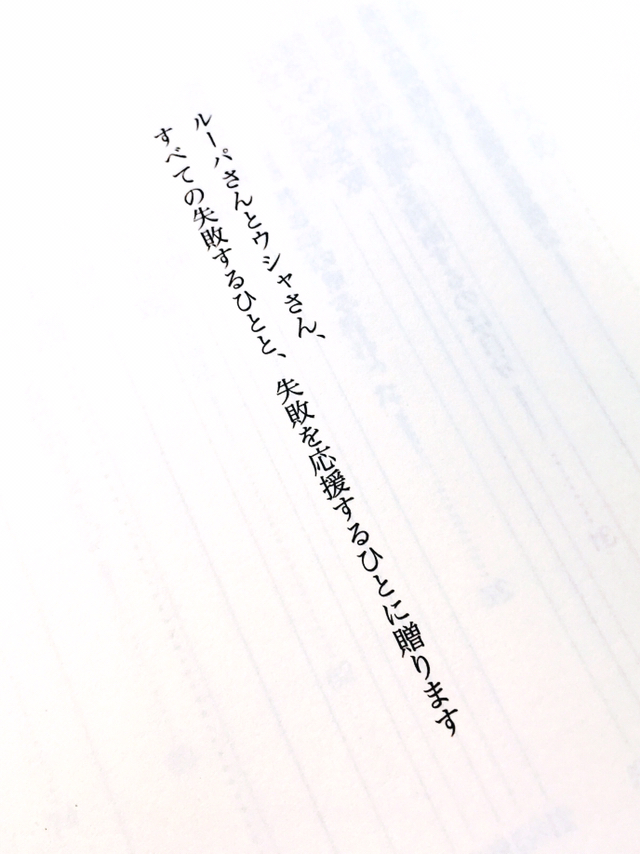 ルーパさんとウシャさん、
すべての失敗するひとと、失敗を応援するひとに贈ります